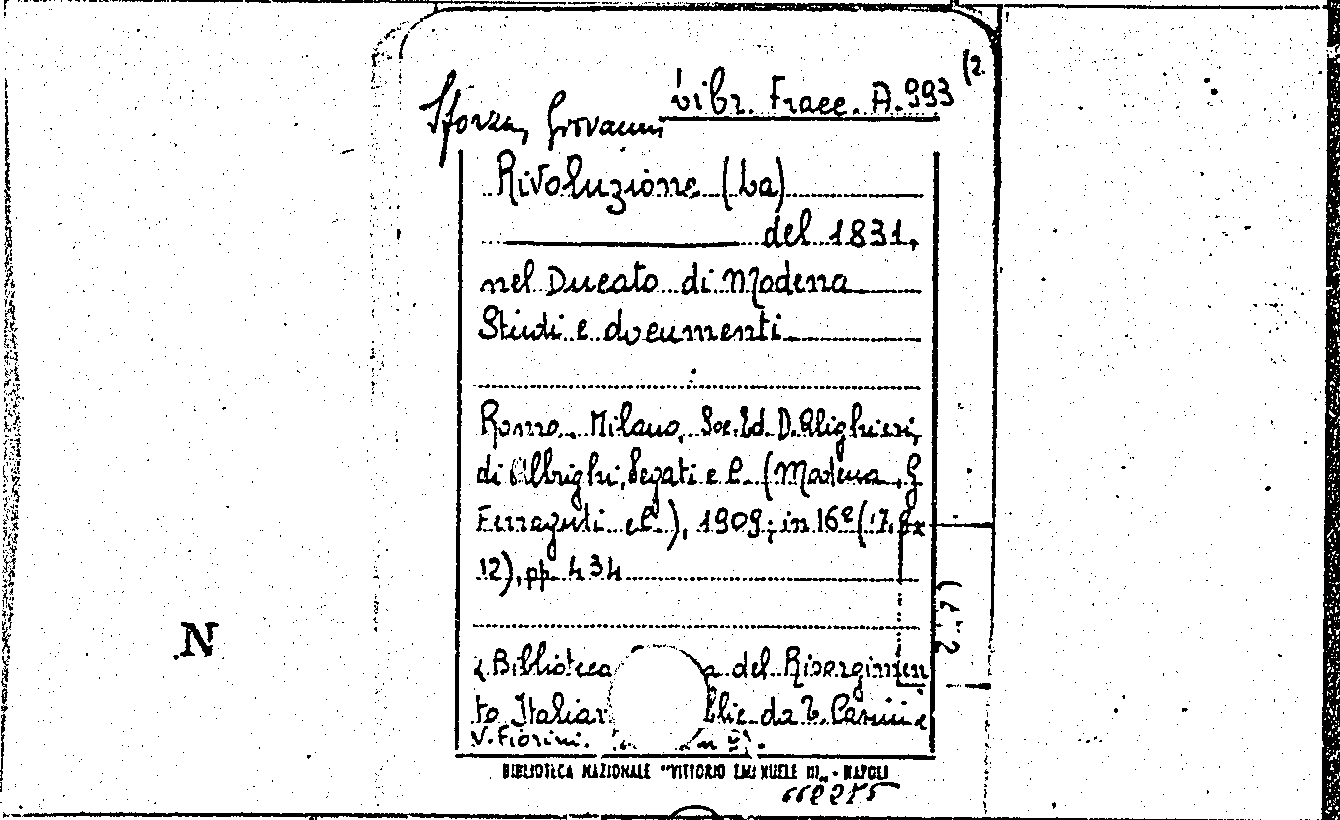 Sforza, Giovanni
vibr. Frace. A.993 (2
Rivoluzione (La)
del 1831,
nel Ducato di Modena
Studi e documenti
Roma. Milano, Soc. Ed. D. Alighieri,
di Albrighi, Segati e C. (Modena, G
Ferraguti e C.), 1909; in 16º (17,8x
12), pp. 434
Biblioteca del Risorgimen
to Italia da T. Casini e
V. Fiorini.
BIBLIOTECA NAZIONALE "VITTORIO EMANUELE III„ - NAPOLI
N